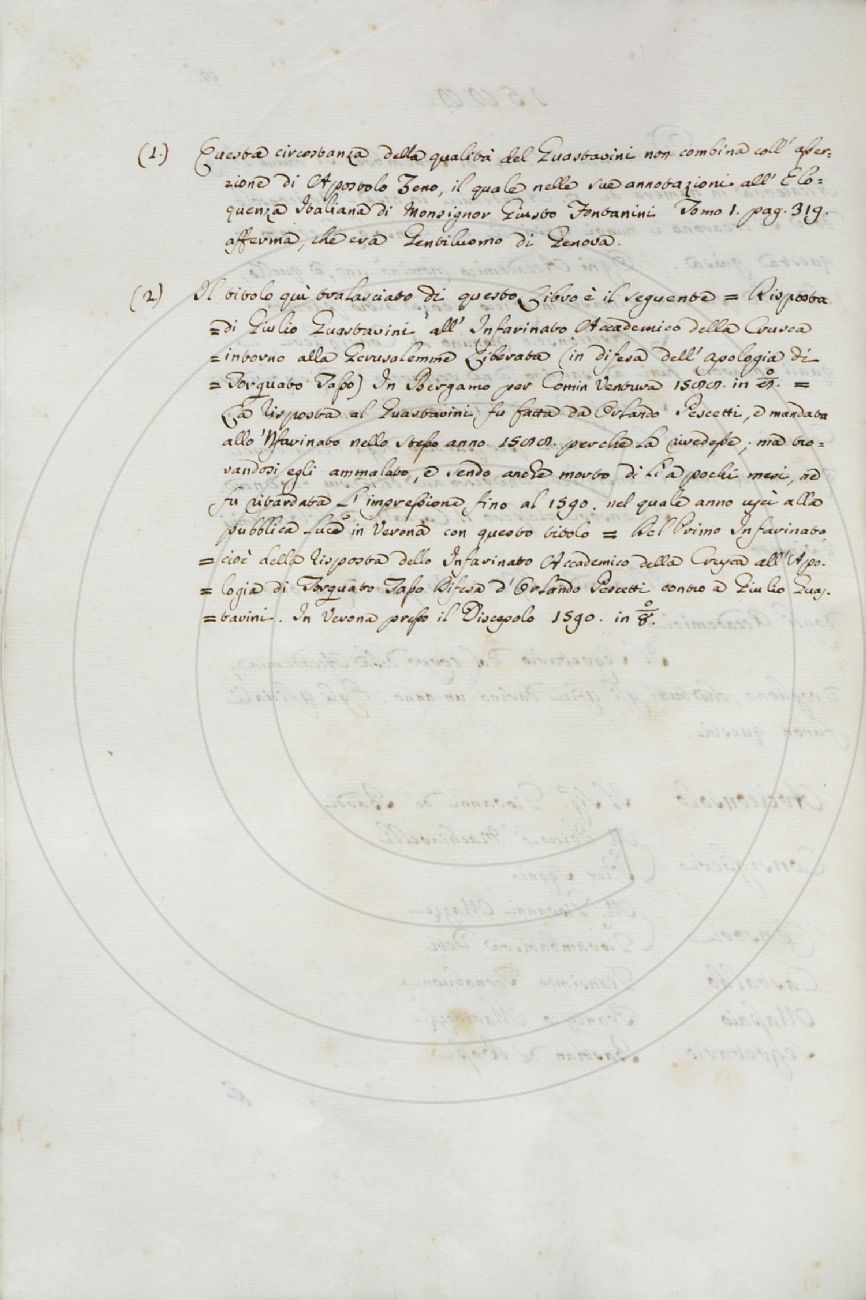 (1.) Questa circostanza della qualità del Guastavini non combina coll' asser=
zione di Apostolo Zeno, il quale nelle sue annotazioni all' Elo=
quenza Italiana di Monsignor Giusto Fontanini Tomo 1. pag. 319.
afferma, che era Gentiluomo di Genova.
(2) Il titolo quì tralasciato di questo Libro è il seguente = Risposta
= di Giulio Guastavini all' Infarinato Accademico della Crusca
= intorno alla Gerusalemme Liberata (in difesa dell' Apologia di
= Torquato Tasso) In Bergamo per Comin Ventura 1588. in 8.º =
La risposta al Guastavini fu fatta da Orlando Pescetti, e mandata
allo 'Nfarinato nello stesso anno 1588. perchè la vedesse; ma tro=
vandosi egli ammalato, e sendo anche morto di lì a pochi mesi, ne
fu ritardata l' impressione fino al 1590. nel quale anno uscì alla
pubblica luce in Verona con questo titolo = Del Primo Infarinato,
= cioè della risposta dello Infarinato Accademico della Crusca all' Apo=
= logia di Torquato Tasso Difesa d' Orlando Pescetti contro a Giulio Guas=
= tavini. In Verona presso il Discepolo 1590. in 8.º